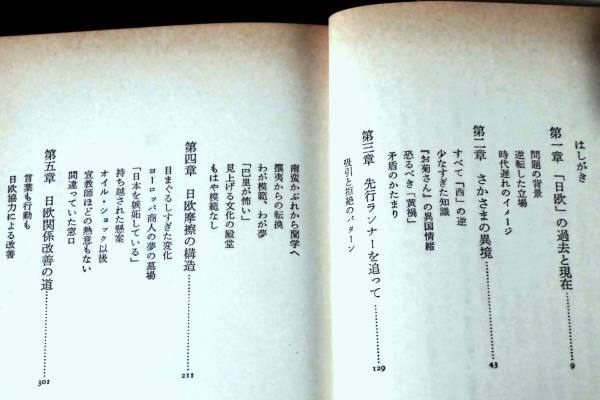 はしがき
第一章 「日欧」の過去と現在 9
問題の背景
逆転した立場
時代遅れのイメージ
第二章 さかさまの異境 43
すべて『西』の逆
少なすぎた知識
『お菊さん』の異国情緒
恐るべき「黄禍」
矛盾のかたまり
第三章 先行ランナーを追って 129
吸引と拒絶のパターン
南蛮かぶれから蘭学へ
攘夷からの転換
わが模範、わが夢
「巴里が怖い」
見上げる文化の殿堂
もはや模範なし
第四章 日欧摩擦の構造 211
目まぐるしすぎた変化
ヨーロッパ商人の夢の墓場
「日本を嫉妬している」
持ち越された懸案
オイル・ショック以後
宣教師ほどの熱意もない
間違っていた窓口
第五章 日欧関係改善の道 301
言葉も行動も
日欧協力による改善